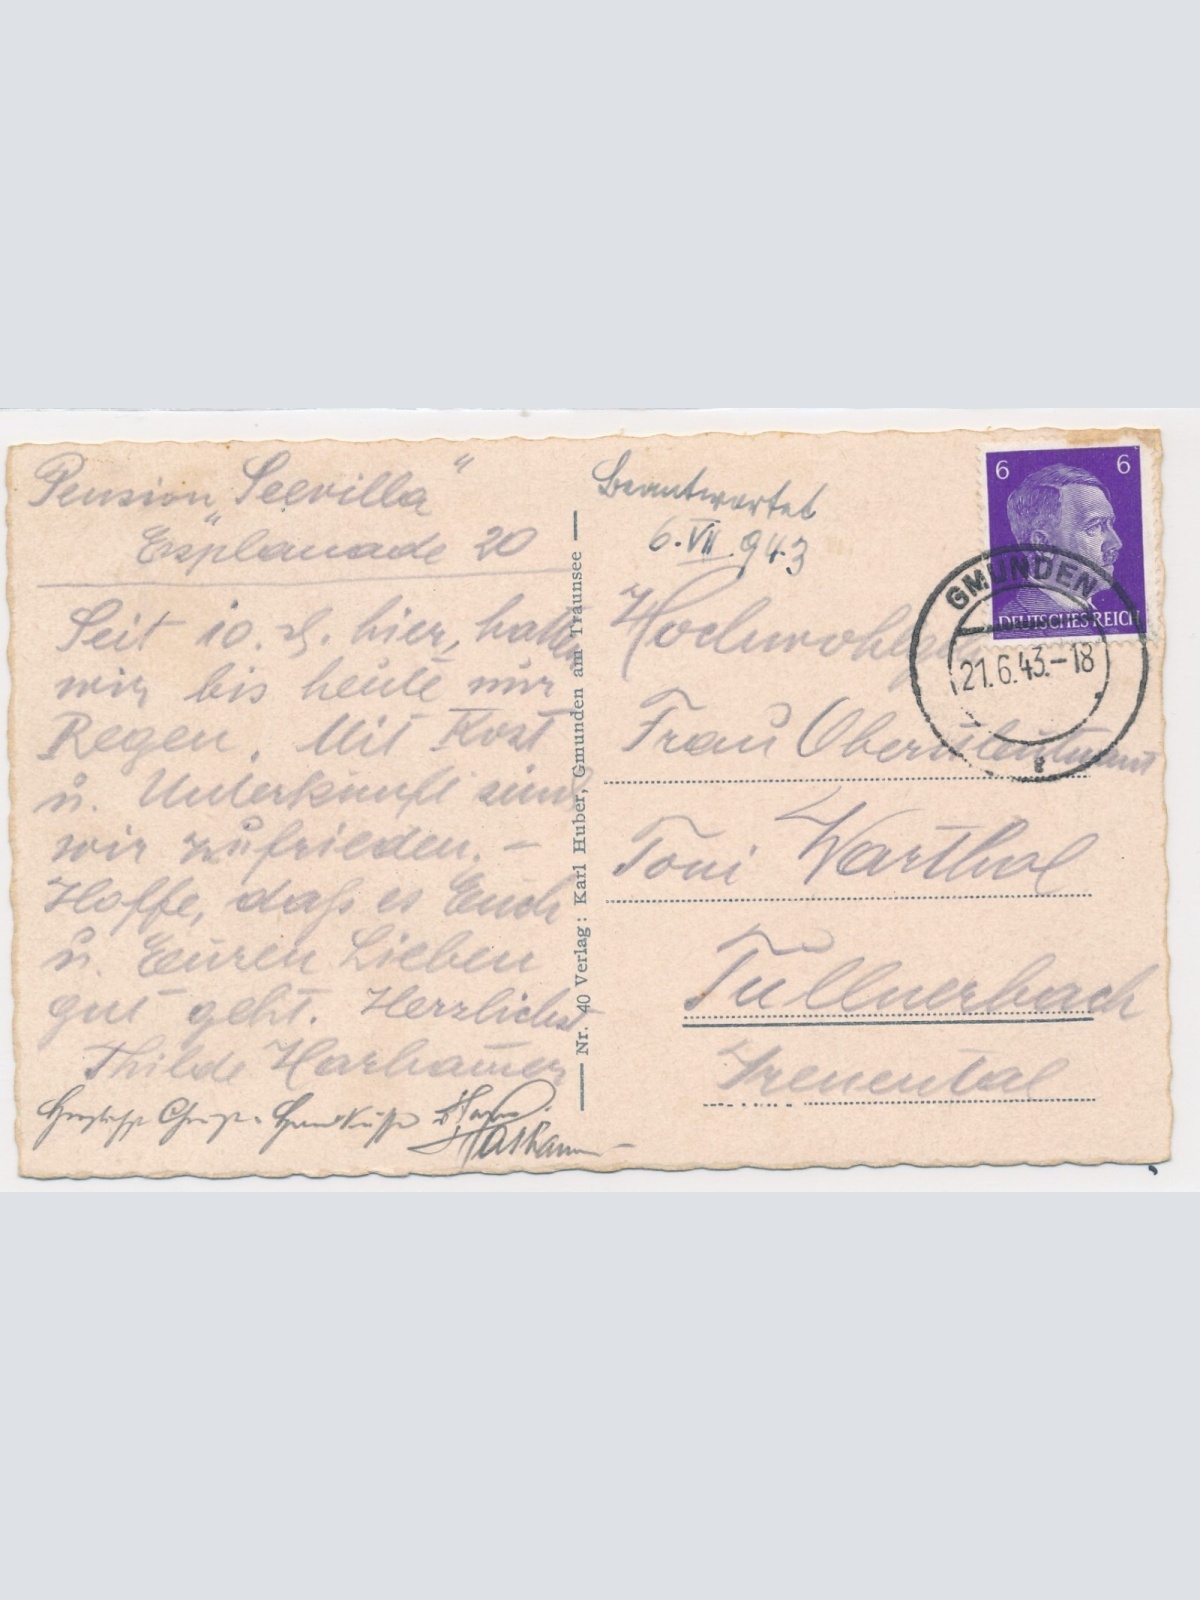 Pension „Seevilla“
Esplanade 20
Seit 10. d. hier, hatten
wir bis heute nur
Regen. Mit Kost
u. Unterkunft sind
wir zufrieden. –
Hoffe, daß es Euch
u. Euren Lieben
gut geht. Herzlichst
Thilde
Nr. 40 Verlag: Karl Huber, Gmunden am Traunsee
Beantwortet
6. VII 943
6 6
DEUTSCHES REICH
GMUNDEN
21.6.43.-18
Hochwohlg
Frau Oberstleutnant
Toni Warthol
Tullnerbach
Irenental